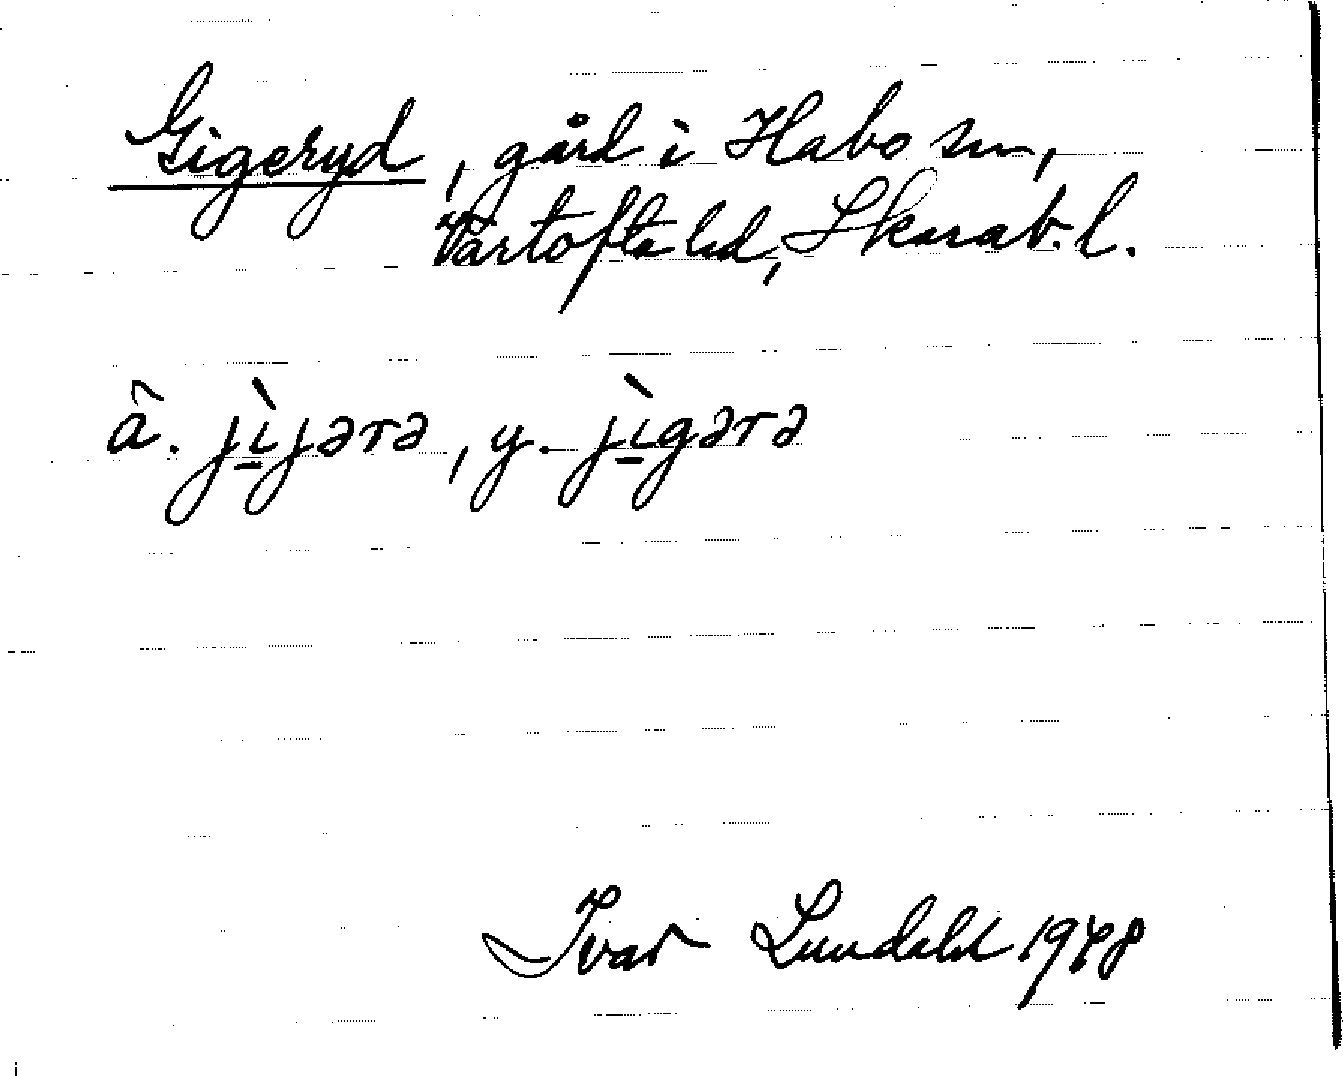 Gigeryd, gård i Habo sn,
Vartofta hd, Skarab. l.
â. jì̠jərə, y. jì̠gərə
Ivar Lundahl 1948